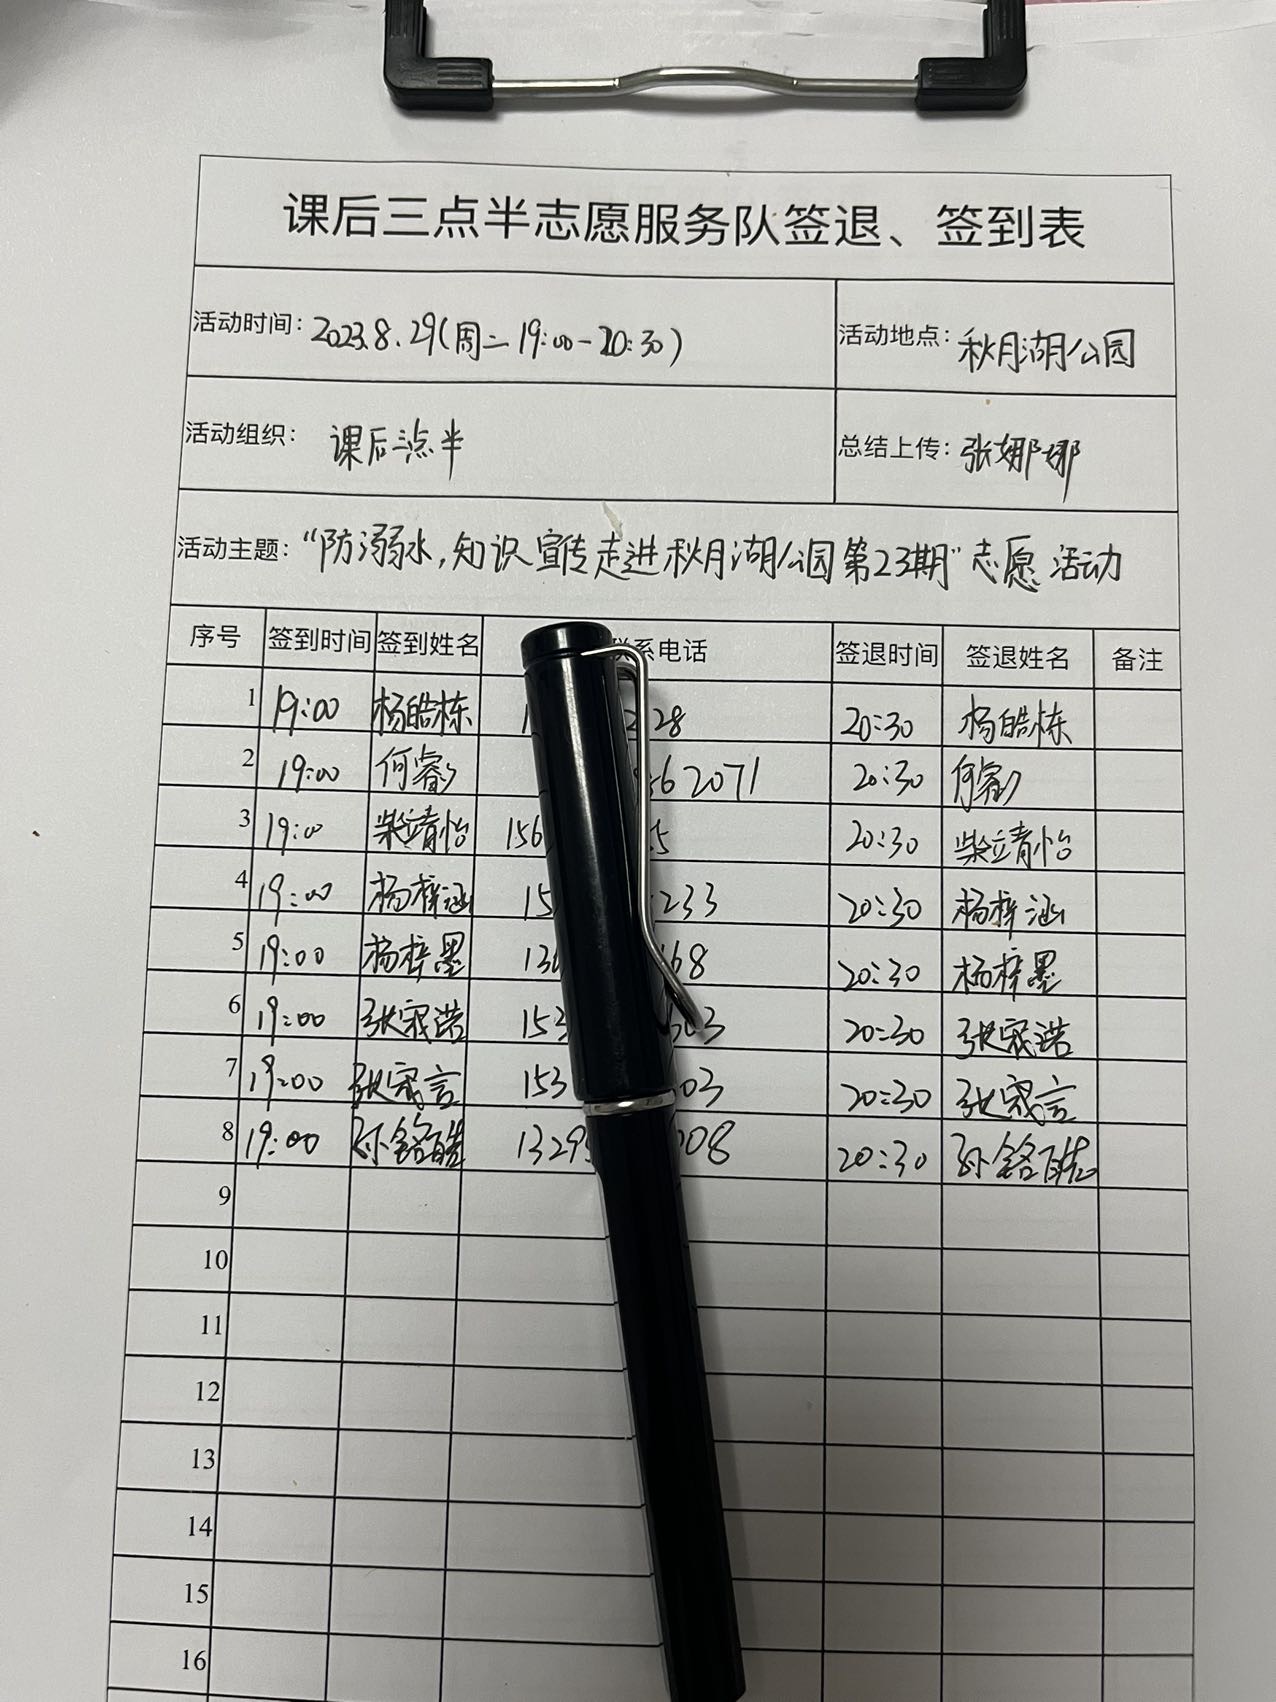 课后三点半志愿服务队签退、签到表
活动时间：2023.8.29(周二 19:00-20:30) 活动地点：秋月湖公园
活动组织： 课后三点半 总结上传：张娜娜
活动主题：“防溺水，知识宣传走进秋月湖公园第23期”志愿活动
序号 签到时间 签到姓名 联系电话 签退时间 签退姓名 备注
1 19:00 杨皓栋 1 28 20:30 杨皓栋
2 19:00 何睿 62071 20:30 何睿
3 19:00 柴靖怡 156 5 20:30 柴靖怡
4 19:00 杨梓涵 15 233 20:30 杨梓涵
5 19:00 杨梓墨 13 68 20:30 杨梓墨
6 19:00 张宬浩 153 03 20:30 张宬浩
7 19:00 张宬言 153 03 20:30 张宬言
8 19:00 孙铭皓 1329 208 20:30 孙铭皓
9
10
11
12
13
14
15
16